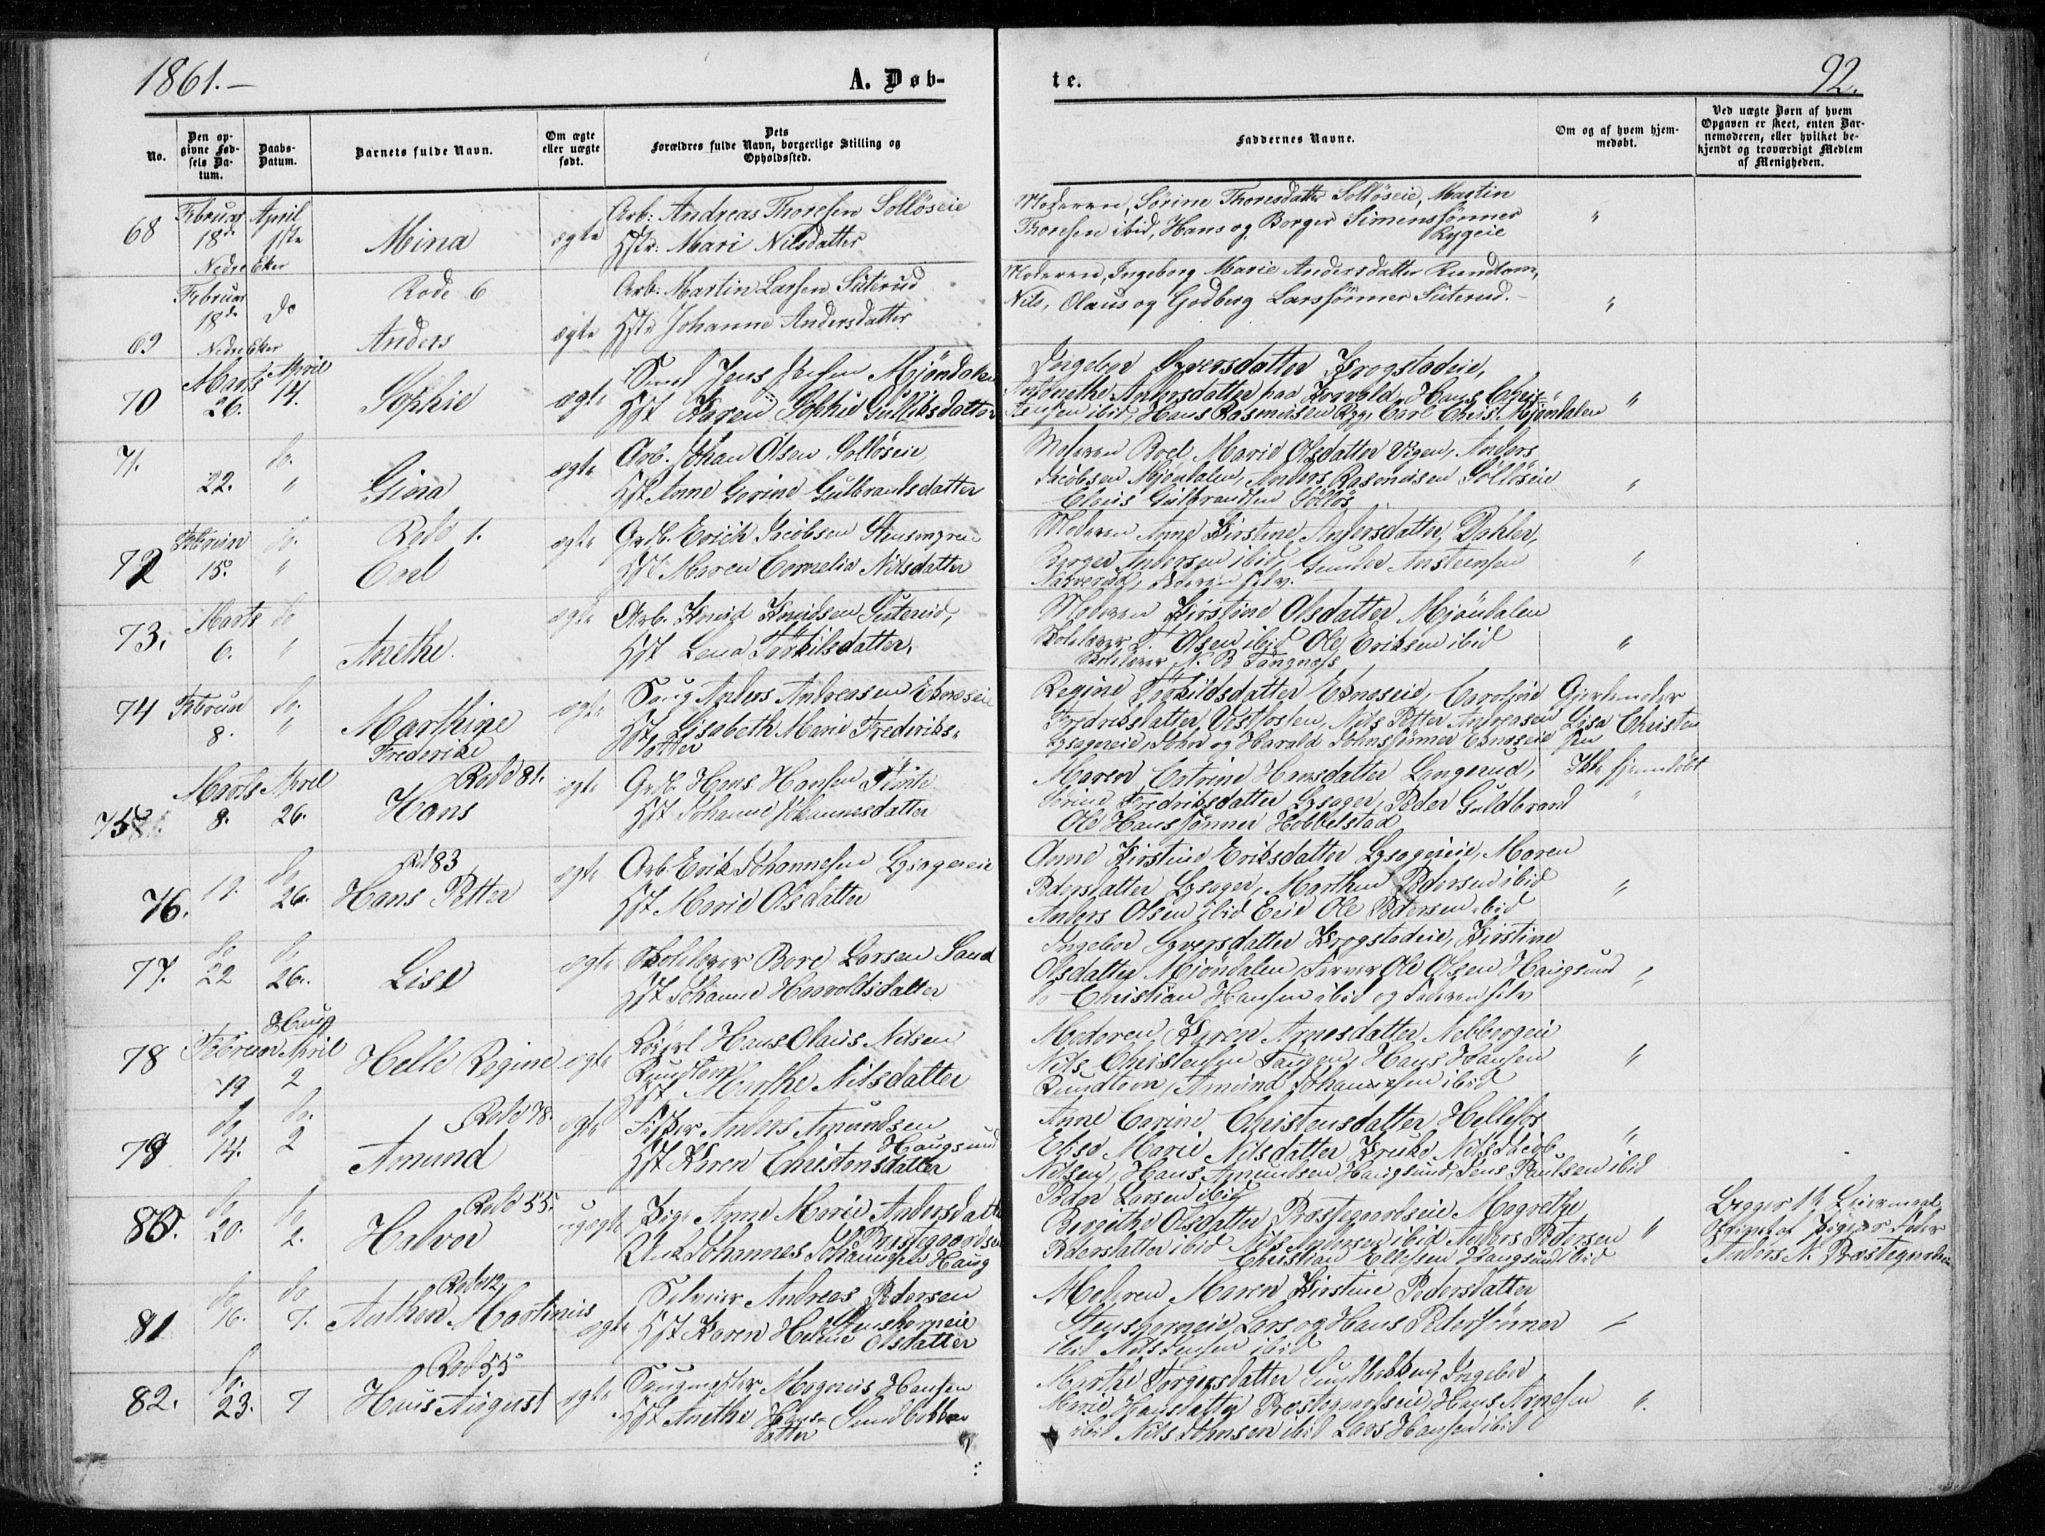 1861.—
A. Døb-
te.
92.
No.
Den op-
givne Fød-
sels Da-
tum.
Daabs-
Datum.
Barnets fulde Navn.
Om ægte
eller uægte
født.
Dets
Forældres fulde Navn, borgerlige Stilling og
Opholdssted.
Faddernes Navne.
Om og af hvem hjem-
medøbt.
Ved uægte Børn af hvem
Opgaven er skeet, enten Bar-
nemoderen, eller hvilket be-
kjendt og troværdigt Medlem
af Menigheden.
68
Februar
18de
Nedre Eker
April
1ste
Mina
ægte
Arb: Andreas Thoresen Solløseie
Hstr: Mari Nilsdatter
Moderen, Sørine Thoresdatter Solløseie, Martin
Thoresen ibid, Hans og Borger Simenssønner
Rygeie
"
69
Februar
18de
Nedre Eker
do
Rode 6
Anders
ægte
Arb: Martin Larsen Stiterud
Hstr Johanne Andersdatter
Moderen, Ingeborg Marie Andersdatter Rundtom,
Nils, Olaus og Godberg Larssønner Stiterud.—
"
70
Marts
26.
April
14.
Sophie
ægte
Jens Mjøndalen
Hst Karen Sophie Gulliksdatter
Ingebor Syversdatter Krogstadeie,
Anthonethe Andersdatter paa Hans Chris-
tensen ibid, Hans Rasmusen Ryg, Carl Chris. Mjøndalen
"
71.
22.
do.
"
Gina
ægte
Arb. Johan Olsen Solløseie
Hst Anne Gorine Gulbrandsdatter
Moderen Roel Marie Olsdatter Vigen, Anders
Jacobsen Mjøndalen, Anders Rasmusen Solløseie
Claus Gulbrandsen Solløs
"
72
Februar
15.
do.
"
Rode 1.
Carl
ægte
Grdb. Erich Jacobsen
Hst Maren Cornelia Nilsdatter
Moderen Anne Kirstine Andersdatter Dahler,
Borger Andersen ibid, Gunder Ansteensen
Faderen selv.
"
73.
Marts
6.
do
"
Anethe.
ægte
Arb. Knud Knudsen Stiterud,
Hst Lena Torkilsdatter,
Moderen Kirstine Olsdatter Mjøndalen
Skolelærer T. Olsen ibid Ole Eriksen ibid
Skolelærer N. B. Tangnæss
"
74
Februar
8.
do.
"
Marthine
Frederike
ægte
Saug Anders Andreasen Eknæseie
Hst Lisabeth Marie Frederiks-
datter
Regine Torkildsdatter Eknæseie, Caroline
Fredriksdatter Vestfossen, Nils Petter Andreasen
Lysagereie, John og Harald Johnssønner Eknæseie
Gjordemoder
Lisa Christen
sen
75
Marts
8.
April
26.
Rode 81.
Hans
ægte
Grdb. Hans Hansen
Hst Johanne Johannesdatter
Maren Catrine Hansdatter Langerud,
Sørine Fredriksdatter Lysager, Peder Guldbrand
Ole Hanssønner Hobbelstad
Ikke hjemdøbt
"
76.
do
26.
Rod 83
Hans Petter
ægte
Arb. Erik Johannesen Lysagereie
Hst Marie Olsdatter
Anne Kirstine Eriksdatter Lysagereie, Maren
Pedersdatter Lysager, Marthin Pedersen ibid
Anders Olsen ibid Eeie Ole Pedersen ibid
"
77.
do
22
do
26.
Lise
ægte
Skolelærer Bore Larsen Sand
Hst Johanne Haavoldsdatter
Ingebor Syversdatter Krogstadeie, Kirstine
Olsdatter Mjøndalen, Farver Ole Olsen Haugsund
do Christian Hansen ibid og Faderen selv
"
78
Februar
19
Haug
April
2
Helle Regine
ægte
Hans Olaus Nilsen
Rundtom
Hst Marthe Nilsdatter
Moderen Karen Arnesdatter Nebbergeie
Nils Christensen Tangen, Hans Hansen
Rundtom, Amund Johannesen ibid
"
79
do
14.
do.
2
Rode 78.
Amund
ægte
Fisker Anders Amundsen
Haugsund
Hst Karen Christensdatter
Anne Carine Christensdatter Hellefos
Elise Marie Nilsdatter Nils Jacob
Nilsen, Hans Amundsen Haugsund, Jens Paulsen ibid
Peder Larsen ibid
"
80.
do
20.
do
2.
Rode 55.
Halvor
uægte
Pige Anne Marie Andersdatter
Præstegaardseie
Unk Johannes Johannesen Haug
Birgithe Olsdatter Præstegaardseie Magrethe
Pedersdatter ibid Nils Andersen ibid Anders Pedersen
Christian Ellefsen Haugsund ibid
"
Begges 1ste Leiermaal,
Opgivet af Pigens Fader
Anders N. Præstegardseie
81
do
16.
do
7.
Rode 12
Anthon Martinius
ægte
Selveier Andreas Pedersen
Stensbergeie
Hst Karen Helene Olsdatter
Moderen Maren Kirstine Pedersdatter
Stensbergeie Lars og Hans Pederssønner
ibid Nils Jensen ibid
"
82.
do.
23.
7
Rod 55
Hans August
ægte
Saugmester Magnus Hansen
Hst Anethe Hans- Sundbakken
datter
Marthe Torgersdatter Sundbakken, Ingebor
Marie Hansdatter Præstegaardseie, Hans Arnesen
ibid Nils Jensen ibid Lars Hansen ibid
"